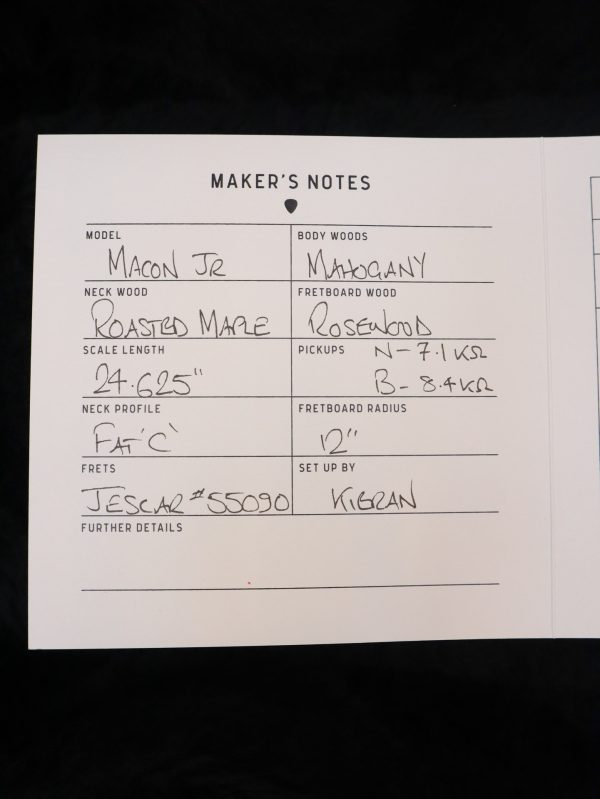 MAKER'S NOTES
MODEL
MACON JR
BODY WOODS
MAHOGANY
NECK WOOD
ROASTED MAPLE
FRETBOARD WOOD
ROSEWOOD
SCALE LENGTH
24.625"
PICKUPS N- 7.1 KΩ
B- 8.4 KΩ
NECK PROFILE
FAT 'C'
FRETBOARD RADIUS
12"
FRETS
JESCAR #55090
SET UP BY
KIERAN
FURTHER DETAILS